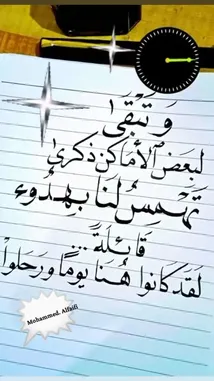 وَتَبْقَىٰ
لبَعْضِ ٱلأَمَاكن ذكرىٰ
تَهْمِسُ لَنَا بِهُدُوءِ
قَائِلَةً...
لَقَد كَانُوا هُنَا يومًا وَرَحَلُوا
Mohammed. Alfaifi